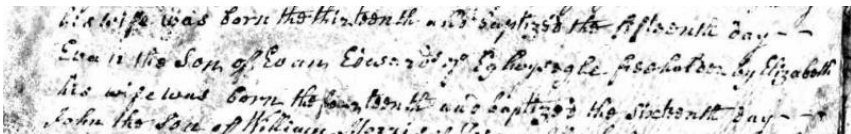 his wife was born the thirteenth and baptized the fifteenth day - -
Evan the Son of Evan Edwards of Eglwysegle freeholder by Elizabeth
his wife was born the fourteenth and baptized the sixteenth day - -
John the Son of William Morris of